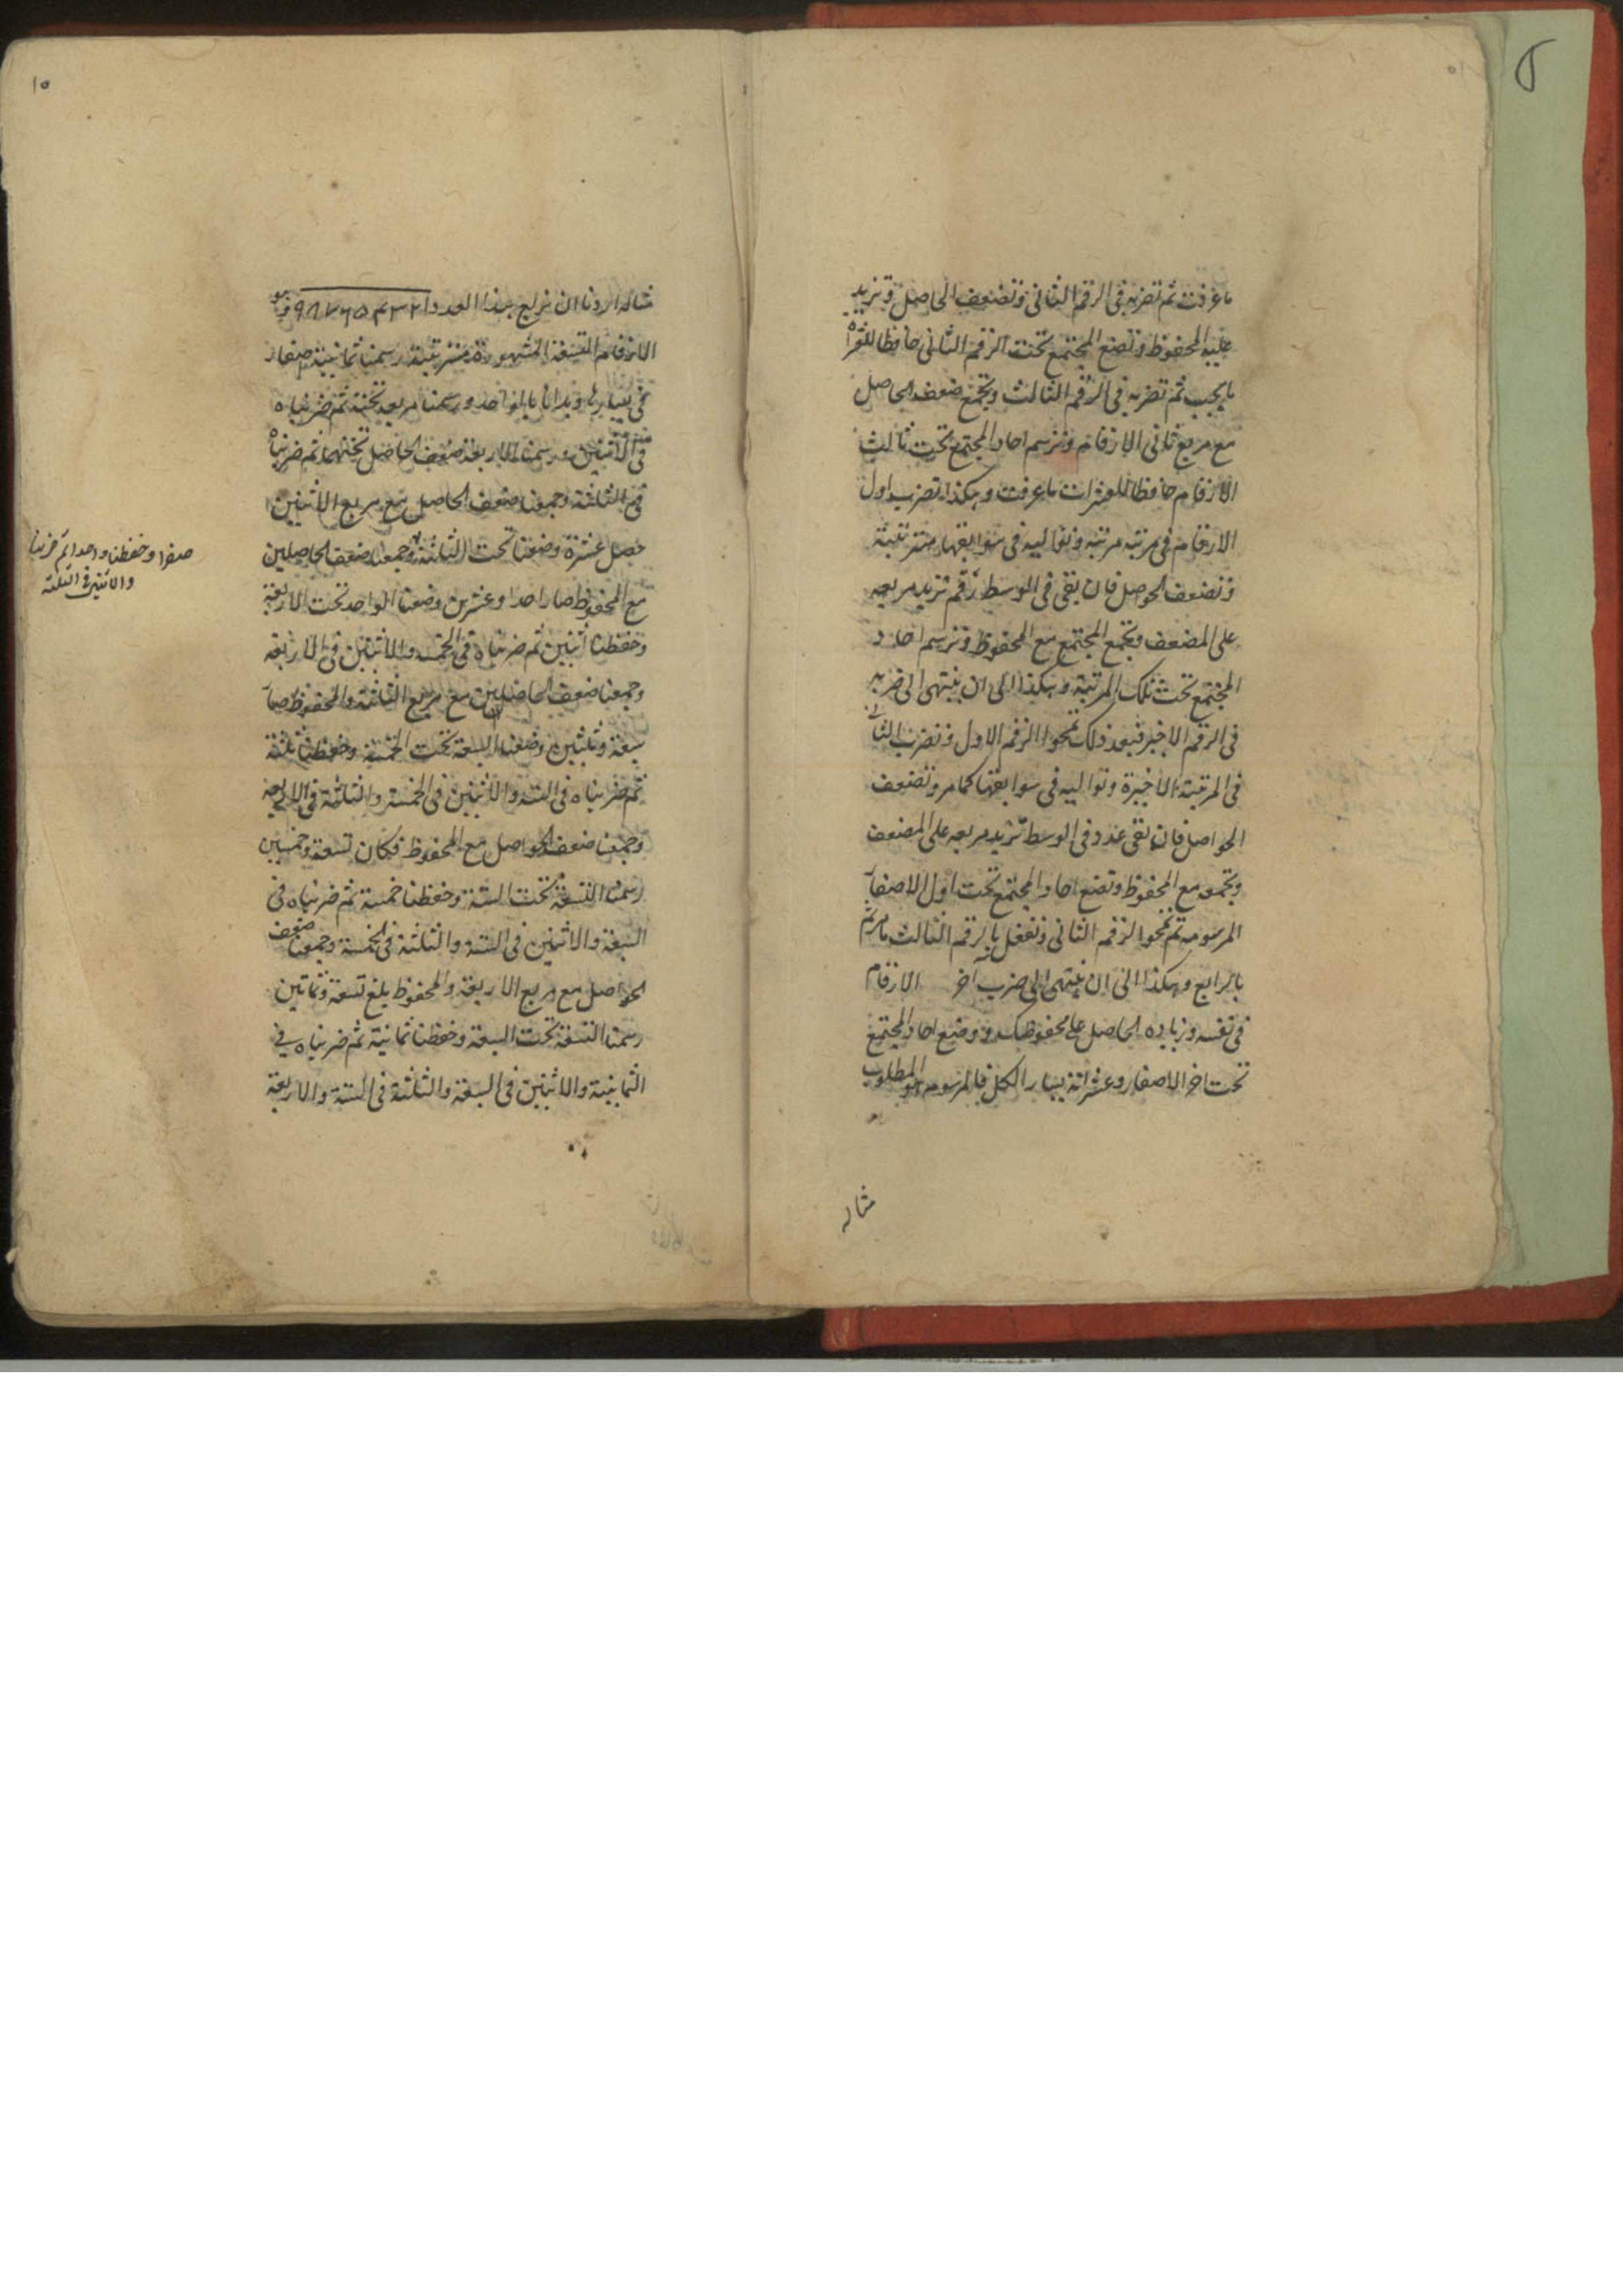 ما عرفت ثم تضربه فى الرقم الثانى وتضعف الحاصل وتزيد
عليه المحفوظ وتضع المجتمع تحت الرقم الثانى حافظا للعشرات
ما يجب ثم تضربه فى الرقم الثالث وتجمع ضعف الحاصل
مع مربع ثانى الارقام وترسم احاد المجتمع تحت ثالث
الارقام حافظا للعشرات ما عرفت وهكذا تضرب اول
الارقام فى مرتبة مرتبة وتواليه فى سوابقها مترتبة
وتضعف الحواصل فان بقى فى الوسط رقم تزيد مربعه
على المضعف وتجمع المجتمع مع المحفوظ وترسم احاد
المجتمع تحت تلك المرتبة وهكذا الى ان ينتهى الى ضربه
فى الرقم الاخير فبعد ذلك تمحوا الرقم الاول وتضرب الثانى
فى المرتبة الاخيرة وتواليه فى سوابقها كما مر وتضعف
الحواصل فان بقى عدد فى الوسط تزيد مربعه على المضعف
وتجمعه مع المحفوظ وتضع احاد المجتمع تحت اول الاصفار
المرسومه ثم تمحوا الرقم الثانى وتفعل بالرقم الثالث ما مر ثم
بالرابع وهكذا الى ان ينتهى الى ضرب آخر الارقام
فى نفسه وزيادة الحاصل على محفوظك ووضع احاد المجتمع
تحت اخر الاصفار وعشراته يسار الكل فالمرسوم هو المطلوب
مثاله
١٥
مثاله اردنا ان نربع هذا العدد ٩٨٧٦٥٤٣٢١ وهو
الارقام التسعة المشهورة مترتبة رسمنا ثمانية اصفار
فى يسارها وبدأنا بالواحد ورسمنا مربعه تحته ثم ضربناه
فى الاثنين ورسمنا الاربعة ضعف الحاصل تحتهما ثم ضربناه
فى الثلثة وجمعنا ضعف الحاصل مع مربع الاثنين
حصل عشرة وضعنا تحت الثلثة وجمعنا ضعف الحاصلين
صفرا وحفظنا واحدا ثم ضربنا
والاثنين فى الثلثة
مع المحفوظ صار احدا وعشرين وضعنا الواحد تحت الاربعة
وحفظنا اثنين ثم ضربناه فى الخمسه والاثنين فى الاربعة
وجمعنا ضعف الحاصلين مع مربع الثلثة والمحفوظ صار
سبعة وثلثين وضعنا السبعة تحت الخمسة وحفظنا ثلثة
ثم ضربناه فى الستة والاثنين فى الخمسة والثلثة فى الاربعه
وجمعنا ضعف الحواصل مع المحفوظ فكان تسعة وخمسين
رسمنا التسعة تحت الستة وحفظنا خمسة ثم ضربناه فى
السبعة والاثنين فى الستة والثلثة فى الخمسة وجمعنا ضعف
الحواصل مع مربع الاربعة والمحفوظ بلغ تسعة وثمانين
رسمنا التسعة تحت السبعة وحفظنا ثمانية ثم ضربناه فى
الثمانية والاثنين فى السبعة والثلثة فى الستة والاربعة